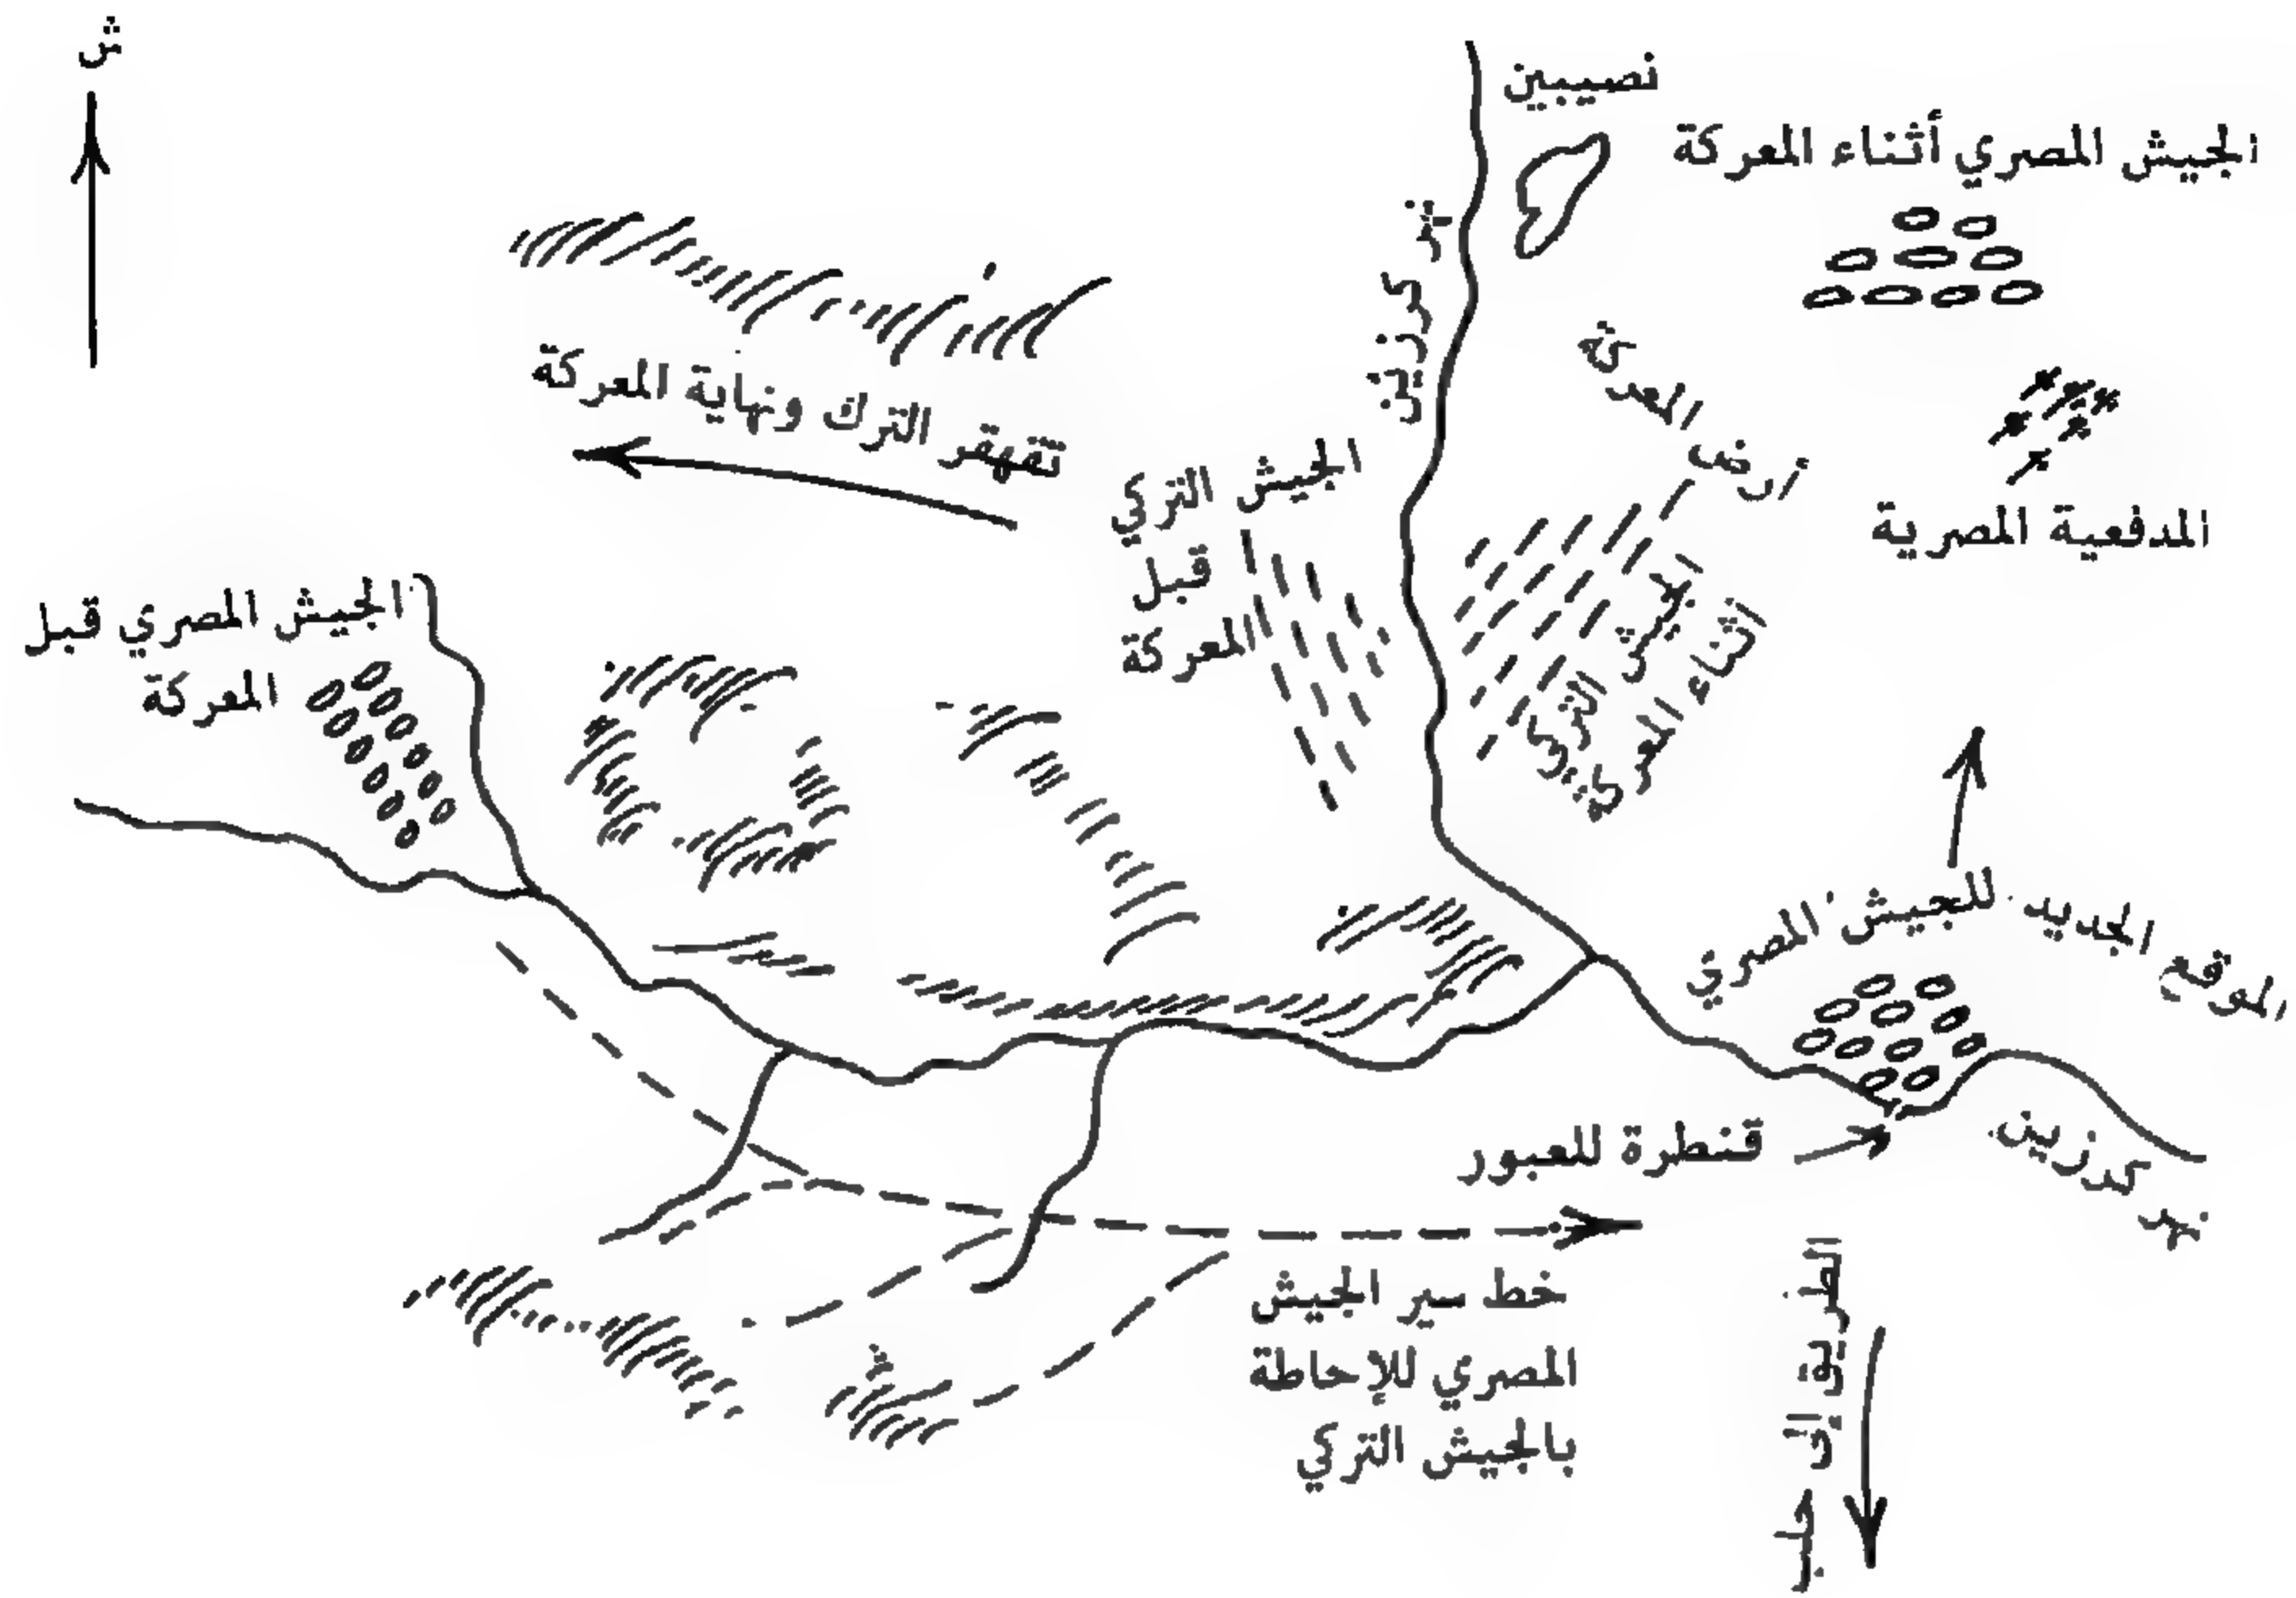 ش
نصيبين
الجيش المصري أثناء المعركة
نهر كرزين
أرض المعركة
تقهقر الترك ونهاية المعركة
المدفعية المصرية
الجيش التركي
قبل
المعركة
الجيش التركي
أثناء المعركة
الجيش المصري قبل
المعركة
الموقع الجديد للجيش المصري
قنطرة للعبور
نهر كرزين
خط سير الجيش
المصري للإحاطة
بالجيش التركي
الطريق إلى حلب